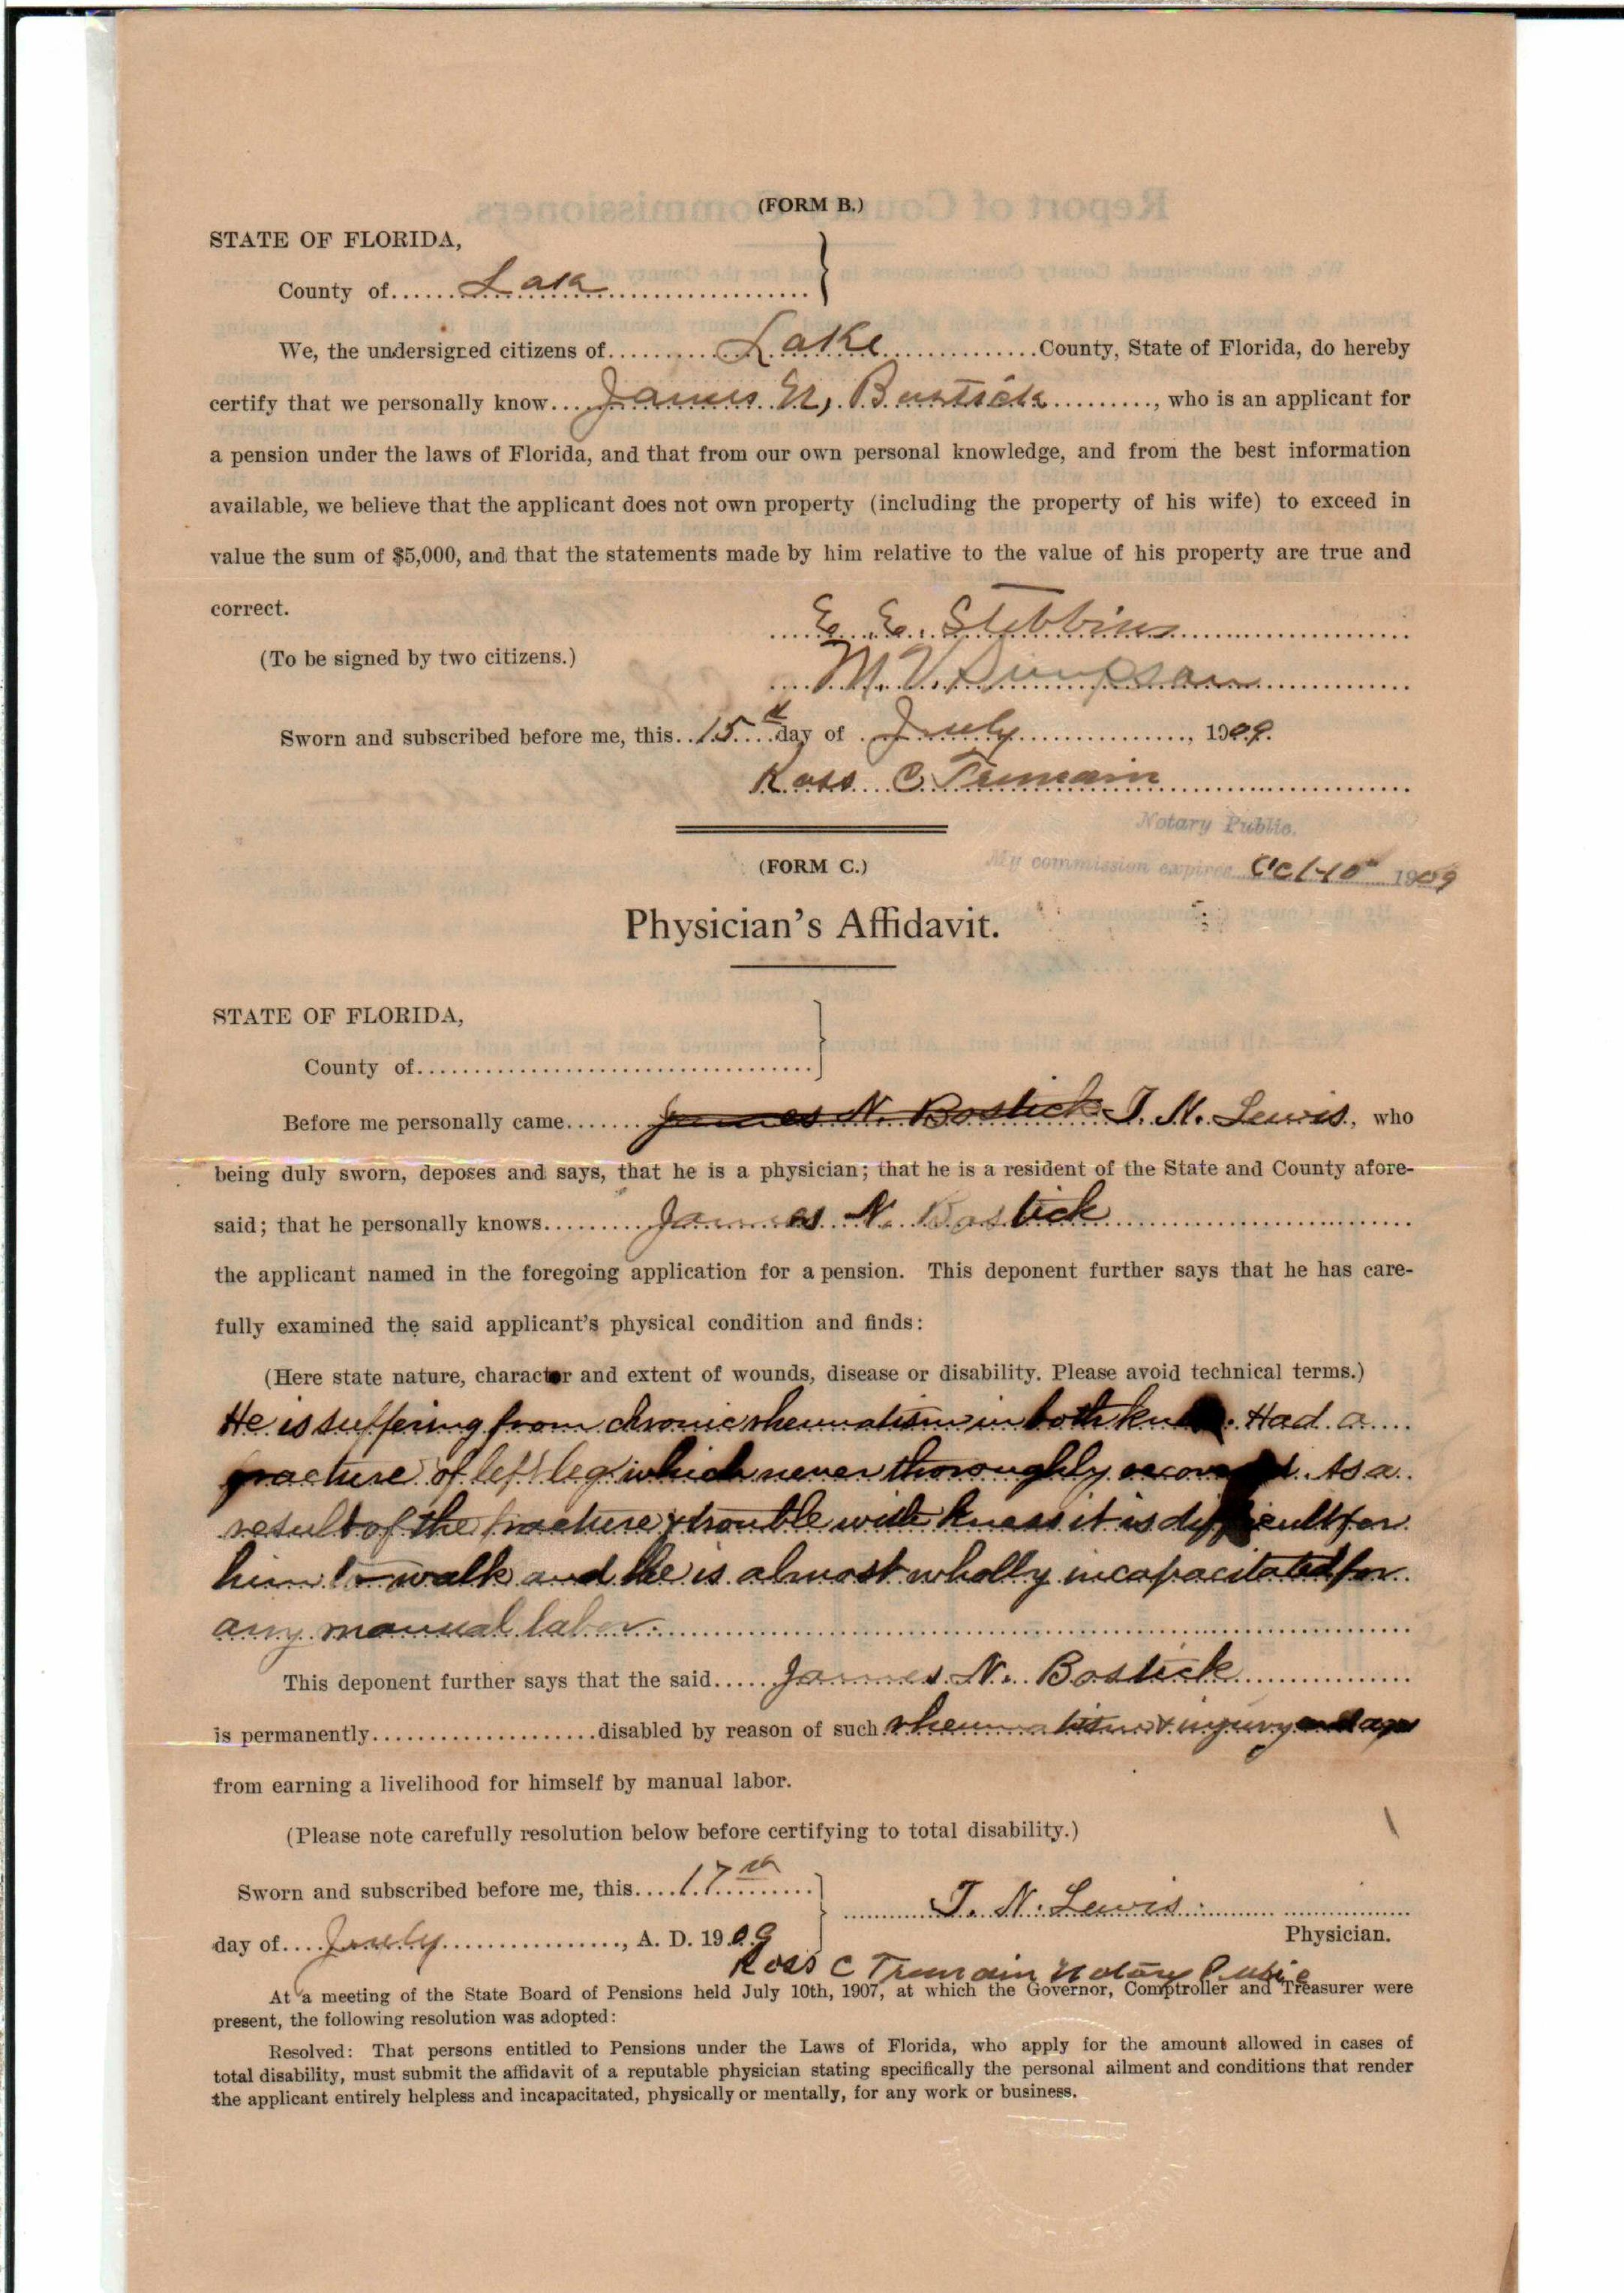 (FORM B.)
STATE OF FLORIDA,
County of Lake
We, the undersigned citizens of Lake County, State of Florida, do hereby
certify that we personally know James N, Bostick, who is an applicant for
a pension under the laws of Florida, and that from our own personal knowledge, and from the best information
available, we believe that the applicant does not own property (including the property of his wife) to exceed in
value the sum of $5,000, and that the statements made by him relative to the value of his property are true and
correct.
E. E. Stebbins
(To be signed by two citizens.)
M. V. Simpson
Sworn and subscribed before me, this 15th day of July, 1909.
Ross C Tremain
Notary Public.
My commission expires Oct 10 1909
(FORM C.)
Physician's Affidavit.
STATE OF FLORIDA,
County of
Before me personally came James N. Bostick T. N. Lewis, who
being duly sworn, deposes and says, that he is a physician; that he is a resident of the State and County afore-
said; that he personally knows James N. Bostick
the applicant named in the foregoing application for a pension. This deponent further says that he has care-
fully examined the said applicant's physical condition and finds:
(Here state nature, character and extent of wounds, disease or disability. Please avoid technical terms.)
He is suffering from chronic rheumatism in both knees. Had a
fracture of left leg which never thoroughly recovered. As a
result of the fracture & trouble with knees it is difficult for
him to walk and he is almost wholly incapacitated for
any manual labor.
This deponent further says that the said James N. Bostick
is permanently disabled by reason of such rheumatism & injury and age
from earning a livelihood for himself by manual labor.
(Please note carefully resolution below before certifying to total disability.)
Sworn and subscribed before me, this 17th
T. N. Lewis
day of July, A. D. 1909
Physician.
Ross C Tremain Notary Public
At a meeting of the State Board of Pensions held July 10th, 1907, at which the Governor, Comptroller and Treasurer were
present, the following resolution was adopted:
Resolved: That persons entitled to Pensions under the Laws of Florida, who apply for the amount allowed in cases of
total disability, must submit the affidavit of a reputable physician stating specifically the personal ailment and conditions that render
the applicant entirely helpless and incapacitated, physically or mentally, for any work or business.